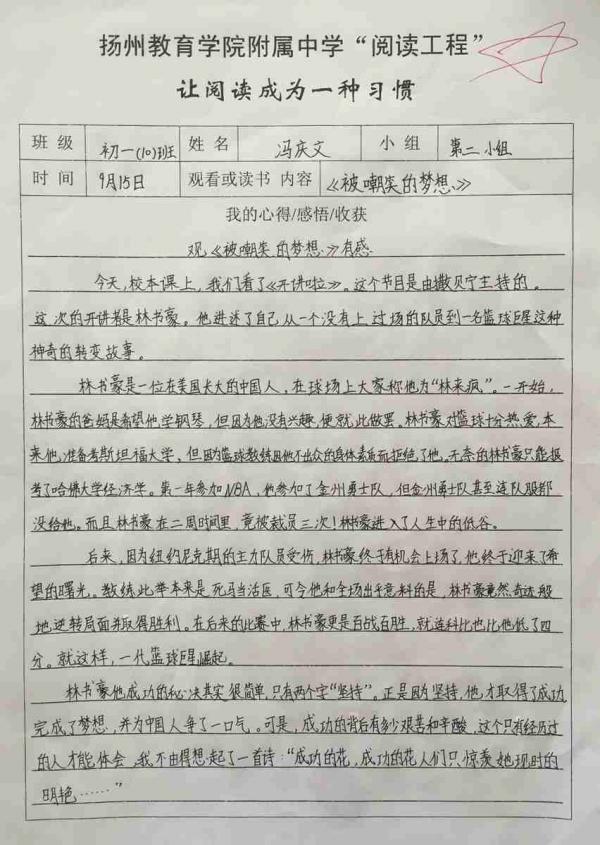 扬州教育学院附属中学“阅读工程”
让阅读成为一种习惯
班 级 初一(10)班 姓 名 冯庆文 小 组 第二小组
时 间 9月15日 观看或读书 内容 《被嘲笑的梦想》
我的心得/感悟/收获
观《被嘲笑的梦想》有感
今天,校本课上,我们看了《开讲啦》。这个节目是由撒贝宁主持的。
这次的开讲者是林书豪。他讲述了自己从一个没有上过场的队员到一名篮球巨星这种
神奇的转变故事。
林书豪是一位在美国长大的中国人,在球场上大家称他为“林来疯”。一开始,
林书豪的爸妈是希望他学钢琴,但因为他没有兴趣,便就此做罢。林书豪对篮球十分热爱,本
来他准备考斯坦福大学,但因为篮球教练因他不出众的身体素质而拒绝了他。无奈的林书豪只能报
考了哈佛大学经济学。第一年参加NBA,他参加了金州勇士队,但金州勇士队甚至连队服都
没给他。而且林书豪在二周时间里,竟被裁员三次!林书豪进入了人生中的低谷。
后来,因为纽约尼克期的主力队员受伤,林书豪终于有机会上场了,他终于迎来了希
望的曙光。教练此举本来是死马当活医,可令他和全场出乎意料的是,林书豪竟然奇迹般
地逆转局面并取得胜利。在后来的比赛中,林书豪更是百战百胜,就连科比也比他低了四
分。就这样,一代篮球巨星崛起。
林书豪他成功的秘决其实很简单,只有两个字“坚持”。正是因为坚持,他才取得了成功,
完成了梦想,并为中国人争了一口气。可是,成功的背后有多少艰苦和辛酸,这个只有经历过
的人才能体会,我不由得想起了一首诗:“成功的花,成功的花人们只惊羡她现时的
明艳……”